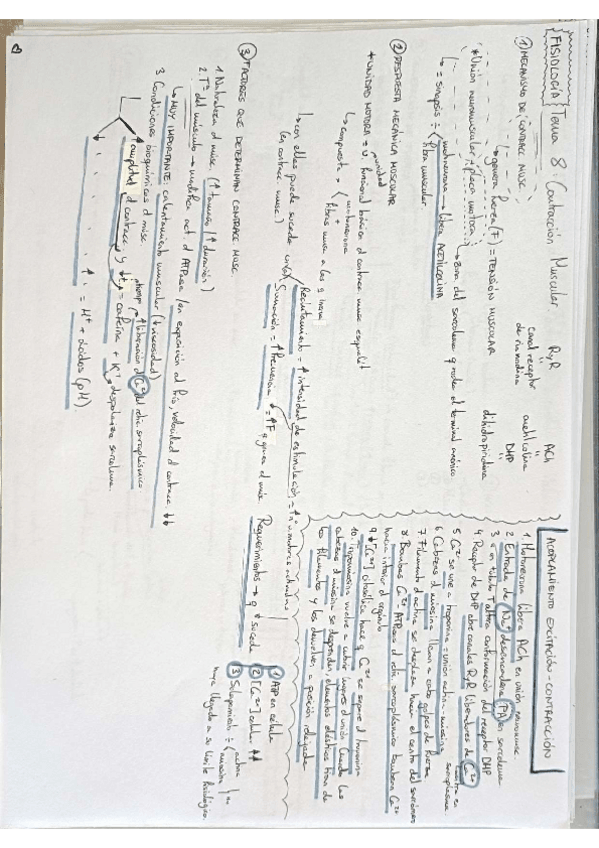 FISIOLOGÍA Tema 8: Contracción Muscular
RyR
canal receptor
de rianodina
ACh
acetilcolina
DHP
dihidropiridina
① MECANISMO DE CONTRACC MUSC
genera fuerza (F) = TENSIÓN MUSCULAR
* Unión neuromuscular ÷ placa motora
zona del sarcolema q rodea el terminal axónico
= sinapsis ÷ motoneurona → libera ACETILCOLINA
fibra muscular
② RESPUESTA MECÁNICA MUSCULAR
* UNIDAD MOTORA = U. funcional básica d contracc musc esquelét
compuesta x motoneurona
fibras musc a las q inerva
con ellas puede suceder
(en contracc musc)
Reclutamiento = ↑ intensidad de estimulación = ↑ nº u. motoras activadas
Sumación = ↑ frecuencia = ↑F q genera el musc
③ FACTORES QUE DETERMINAN CONTRACC MUSC
1. Naturaleza d músc. (↑ tamaño / ↑ duración)
2. Tª del músculo → modifica act d ATPasa (en exposición al frío, velocidad d contracc ↓↓
MUY IMPORTANTE: calentamiento muscular (↓ viscosidad)
3. Condiciones bioquímicas d músc
↑ liberación d Ca²⁺ del retíc. sarcoplásmico
↑ amplitud d contracc y = cafeína + K⁺ despolariza sarcolema
↓ " " " " ↑ " = H⁺ + ácidos (pH)
ACOPLAMIENTO EXCITACIÓN-CONTRACCIÓN
1. Motoneurona libera ACh en unión neuromusc
2. Entrada de Na⁺ desencadena PA en sarcolema
3. en túbulo T altera conformación del receptor DHP
4. Receptor de DHP abre canales RyR liberadores de Ca²⁺
5. Ca²⁺ se une a troponina = unión actina-miosina
6. Cabezas d miosina llevan a cabo golpes de fuerza
7. Filamento d actina se desplaza hacia el centro del sarcómero
8. Bombas Ca²⁺ ATPasa d retíc. sarcoplásmico bombea Ca²⁺
hacia interior d orgánulo
9. ↓ [Ca²⁺] citosólica hace q Ca²⁺ se separe d troponina
10. Tropomiosina vuelve a cubrir lugares d unión. Cuando las
cabezas d miosina se desprenden, elementos elásticos tiran de
filamentos y los devuelven a posición relajada
Requerimientos → q suceda
① ATP en célula
② [Ca²⁺] celular ↑↑
③ Solapamiento ÷ actina
miosina
haya llegado a su límite fisiológico